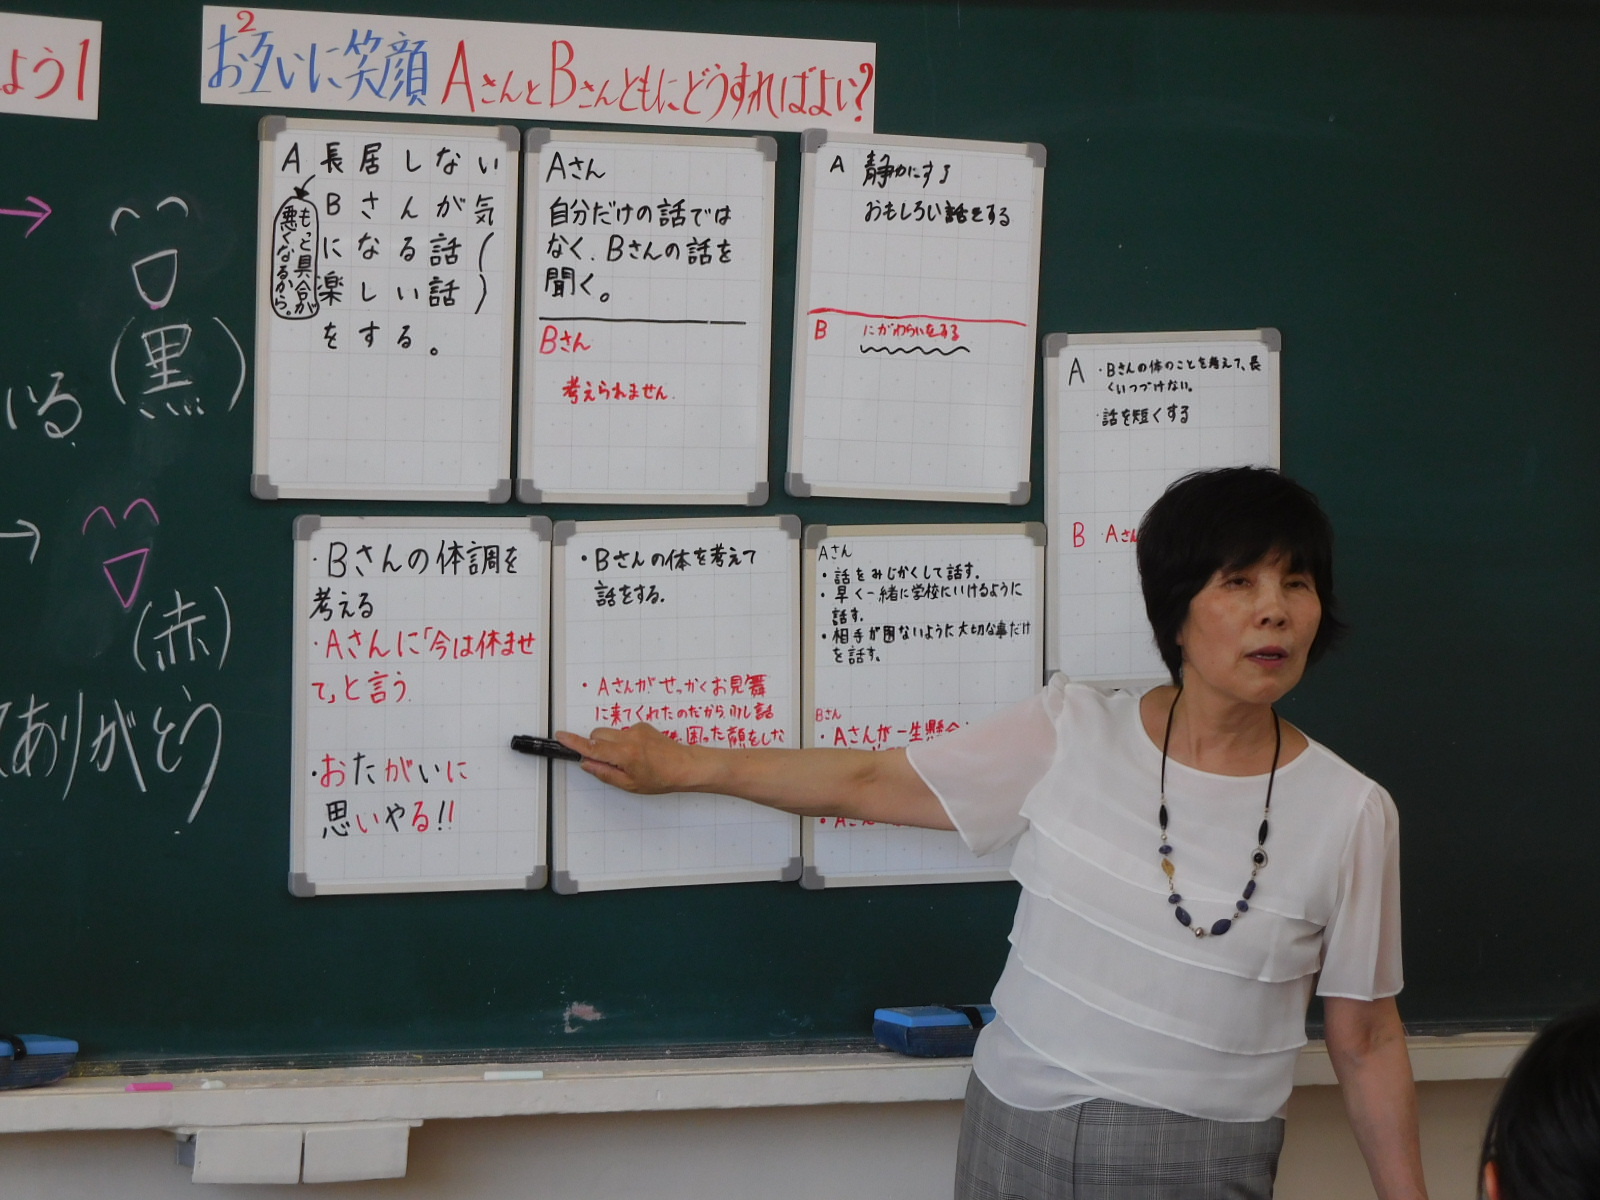 よう1
2
お互いに笑顔 AさんとBさんともにどうすればよい?
いる
(黒)
(赤)
てありがとう
A 長居しない
Bさんが気
になる話(
楽しい話)
をする。
もっと具合が
悪くなるから。
Aさん
自分だけの話では
なく、Bさんの話を
聞く。
Bさん
考えられません.
A 静かにする
おもしろい話をする
B にがわらいをする
A ・Bさんの体のことを考えて、長
くいつづけない。
・話を短くする
B Aさん
・Bさんの体調を
考える
・Aさんに「今は休ませ
て」と言う
・おたがいに
思いやる!!
・Bさんの体を考えて
話をする.
・Aさんがせっかくお見舞
に来てくれたのだから、少し話
困った顔をしな
Aさん
・話をみじかくして話す.
・早く一緒に学校にいけるように
話す.
・相手が困ないように大切な事だけ
を話す。
Bさん
・Aさんが一生懸命
・Aさん